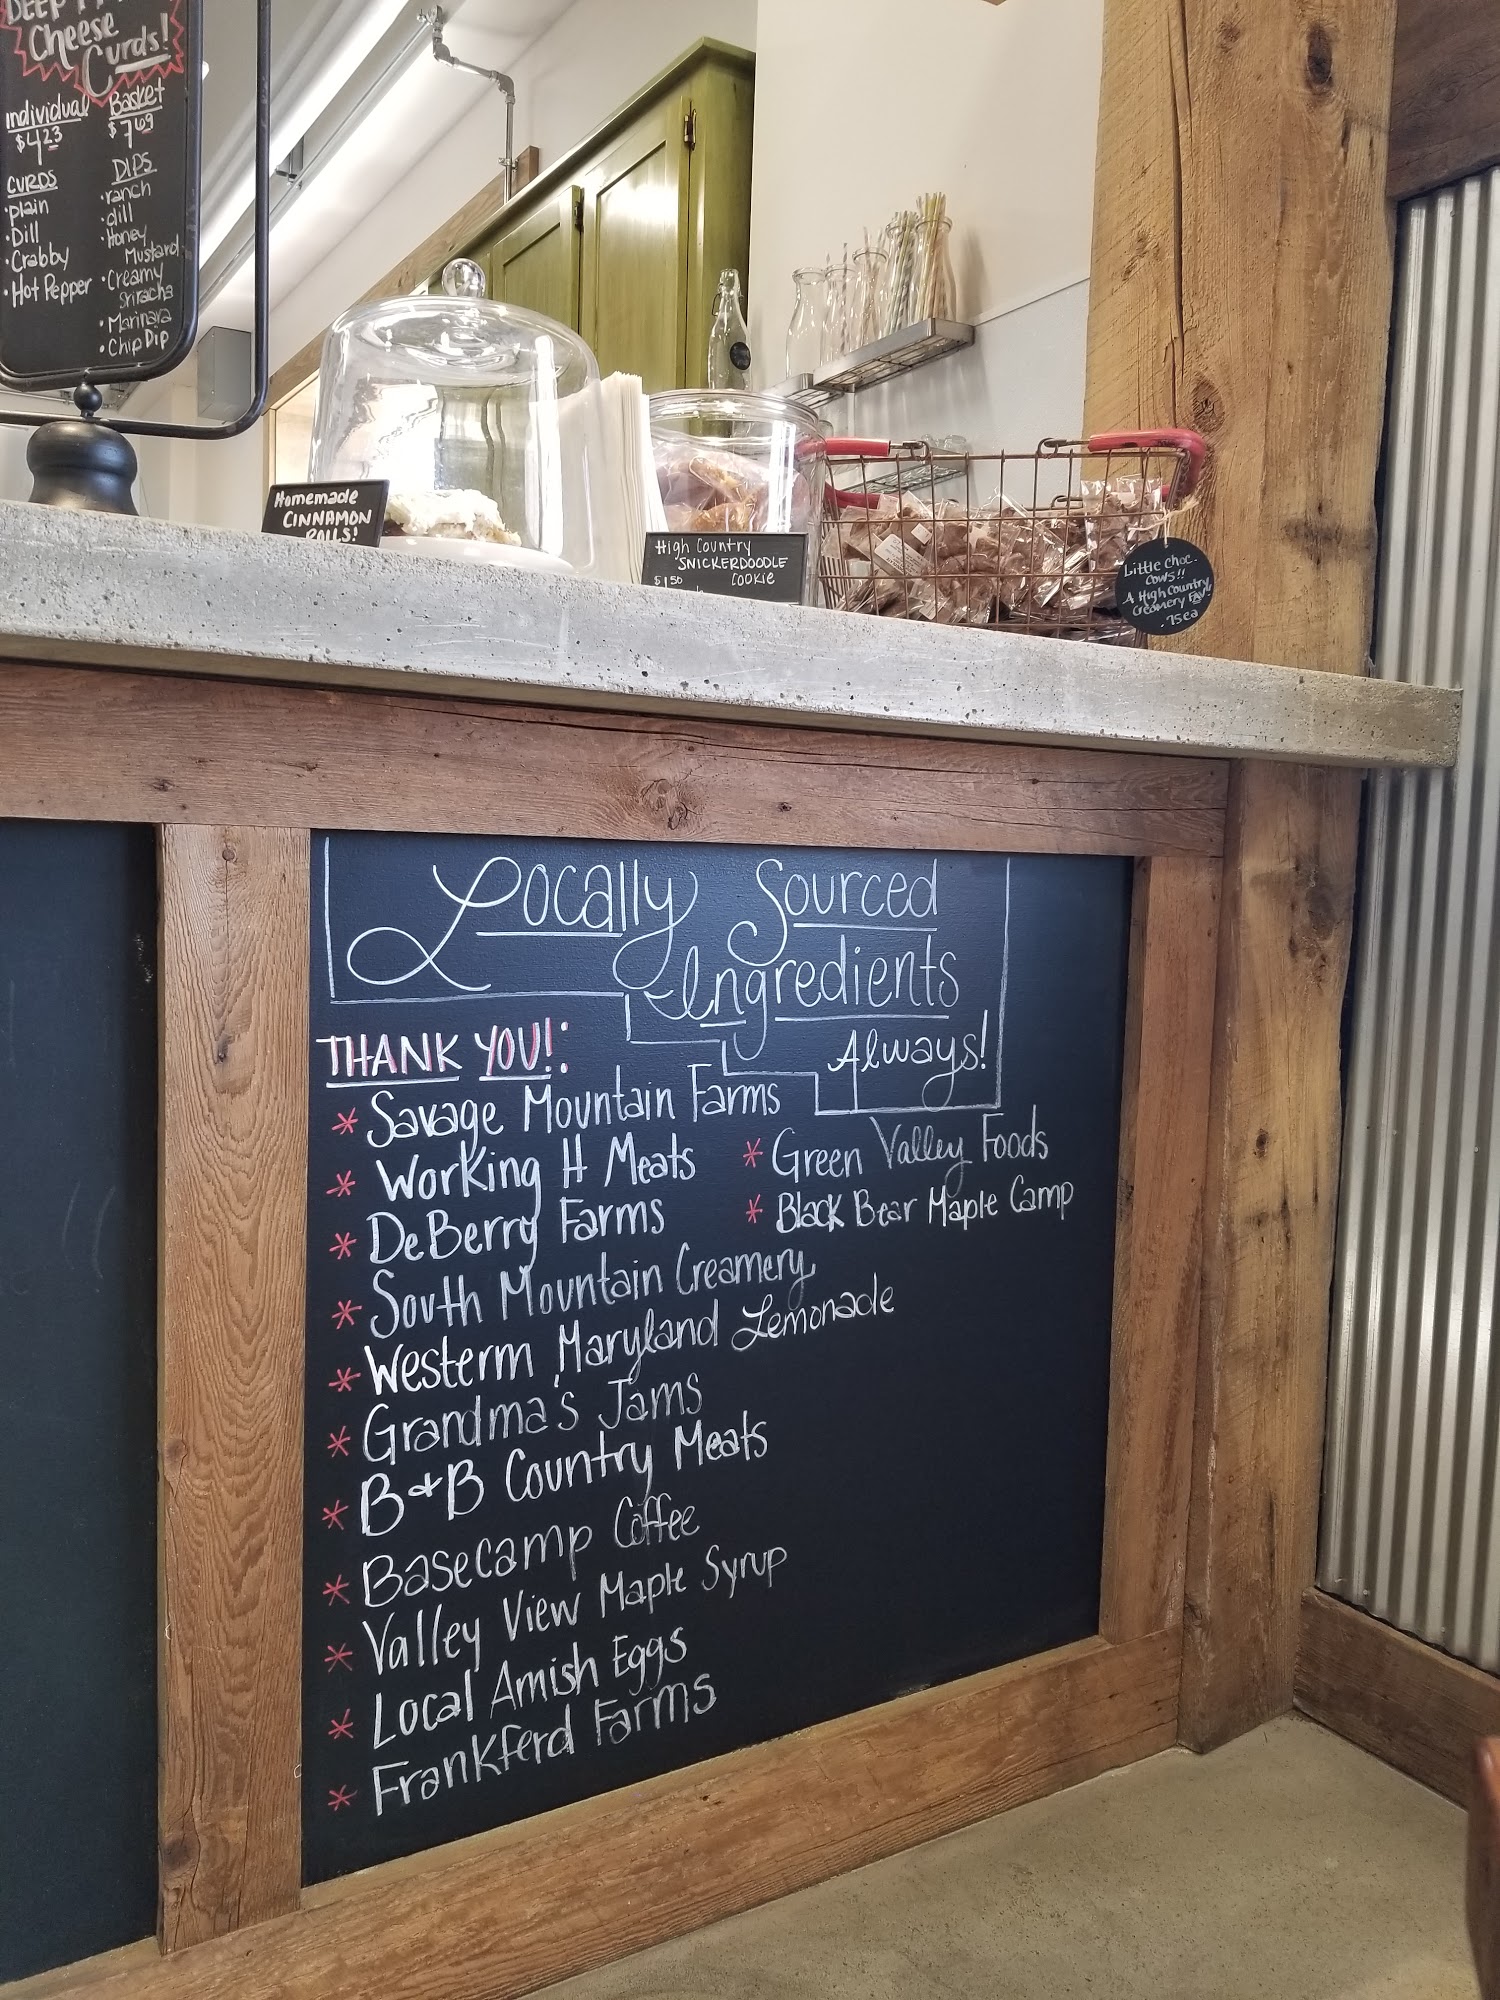 Cheese
Curds!
individual
$4.23
CURDS
·plain
·Dill
·Crabby
·Hot Pepper
Basket
$7.69
DIPS
·ranch
·dill
·Honey
Mustard
·Creamy
Sriracha
·Marinara
·Chip Dip
Homemade
CINNAMON
ROLLS!
High Country
SNICKERDOODLE
$1.50 COOKIE
Little choc.
Cows!!
A High Country
Creamery Fav!
.75ea
Locally Sourced
Ingredients
Always!
THANK YOU!:
* Savage Mountain Farms
* Working H Meats
* DeBerry Farms
* South Mountain Creamery
* Western Maryland Lemonade
* Grandma's Jams
* B+B Country Meats
* Basecamp Coffee
* Valley View Maple Syrup
* Local Amish Eggs
* Frankferd Farms
* Green Valley Foods
* Black Bear Maple Camp